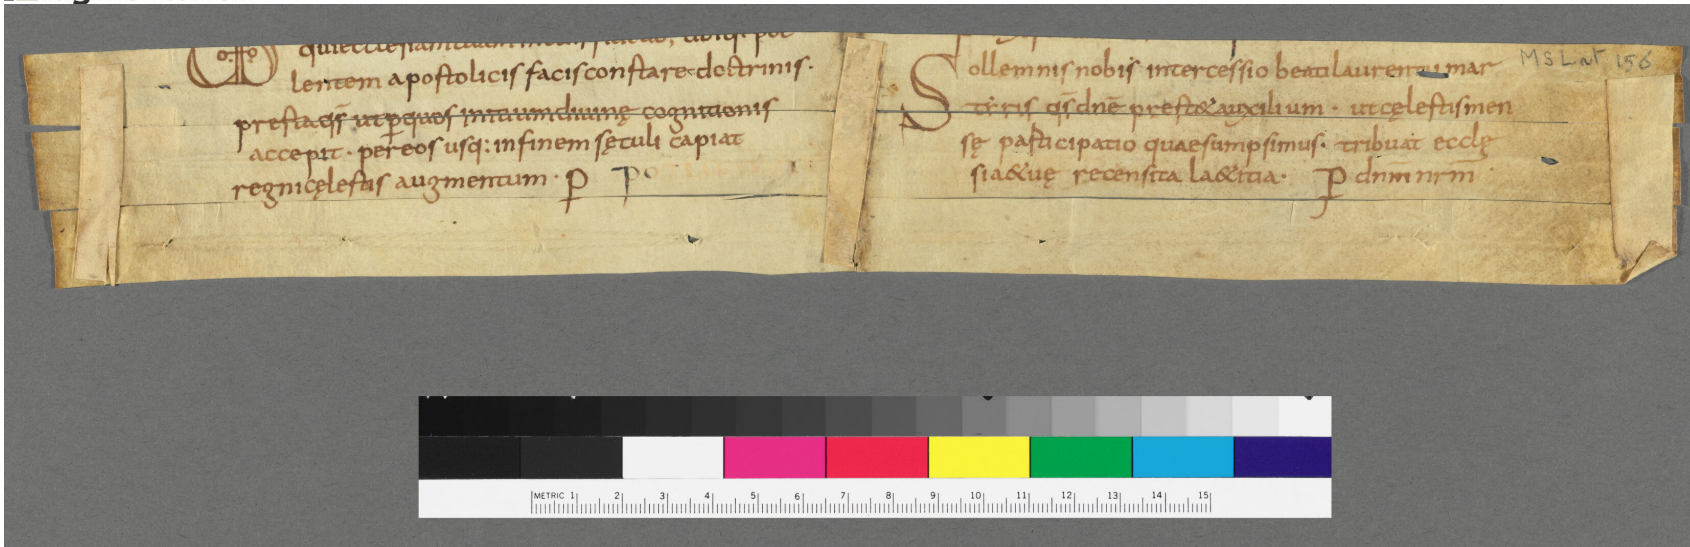 lentem apostolicis facis constare doctrinis·
presta qs̄ ut p̲quos initium diuinę cognitionis
accepit· per eos usq: in finem sęculi capiat
regni cęlestis augmentum· p̲ Po
Sollemnis nobis intercessio beati laurentii mar
tiris qs̄ dnē prest& auxilium· ut cęlestis men
sę participatio quae sumpsimus· tribuat ecclę
sia&uę recensita la&itia· P̲ dnm̄ nrm̄
MS Lat 156
METRIC 1 2 3 4 5 6 7 8 9 10 11 12 13 14 15